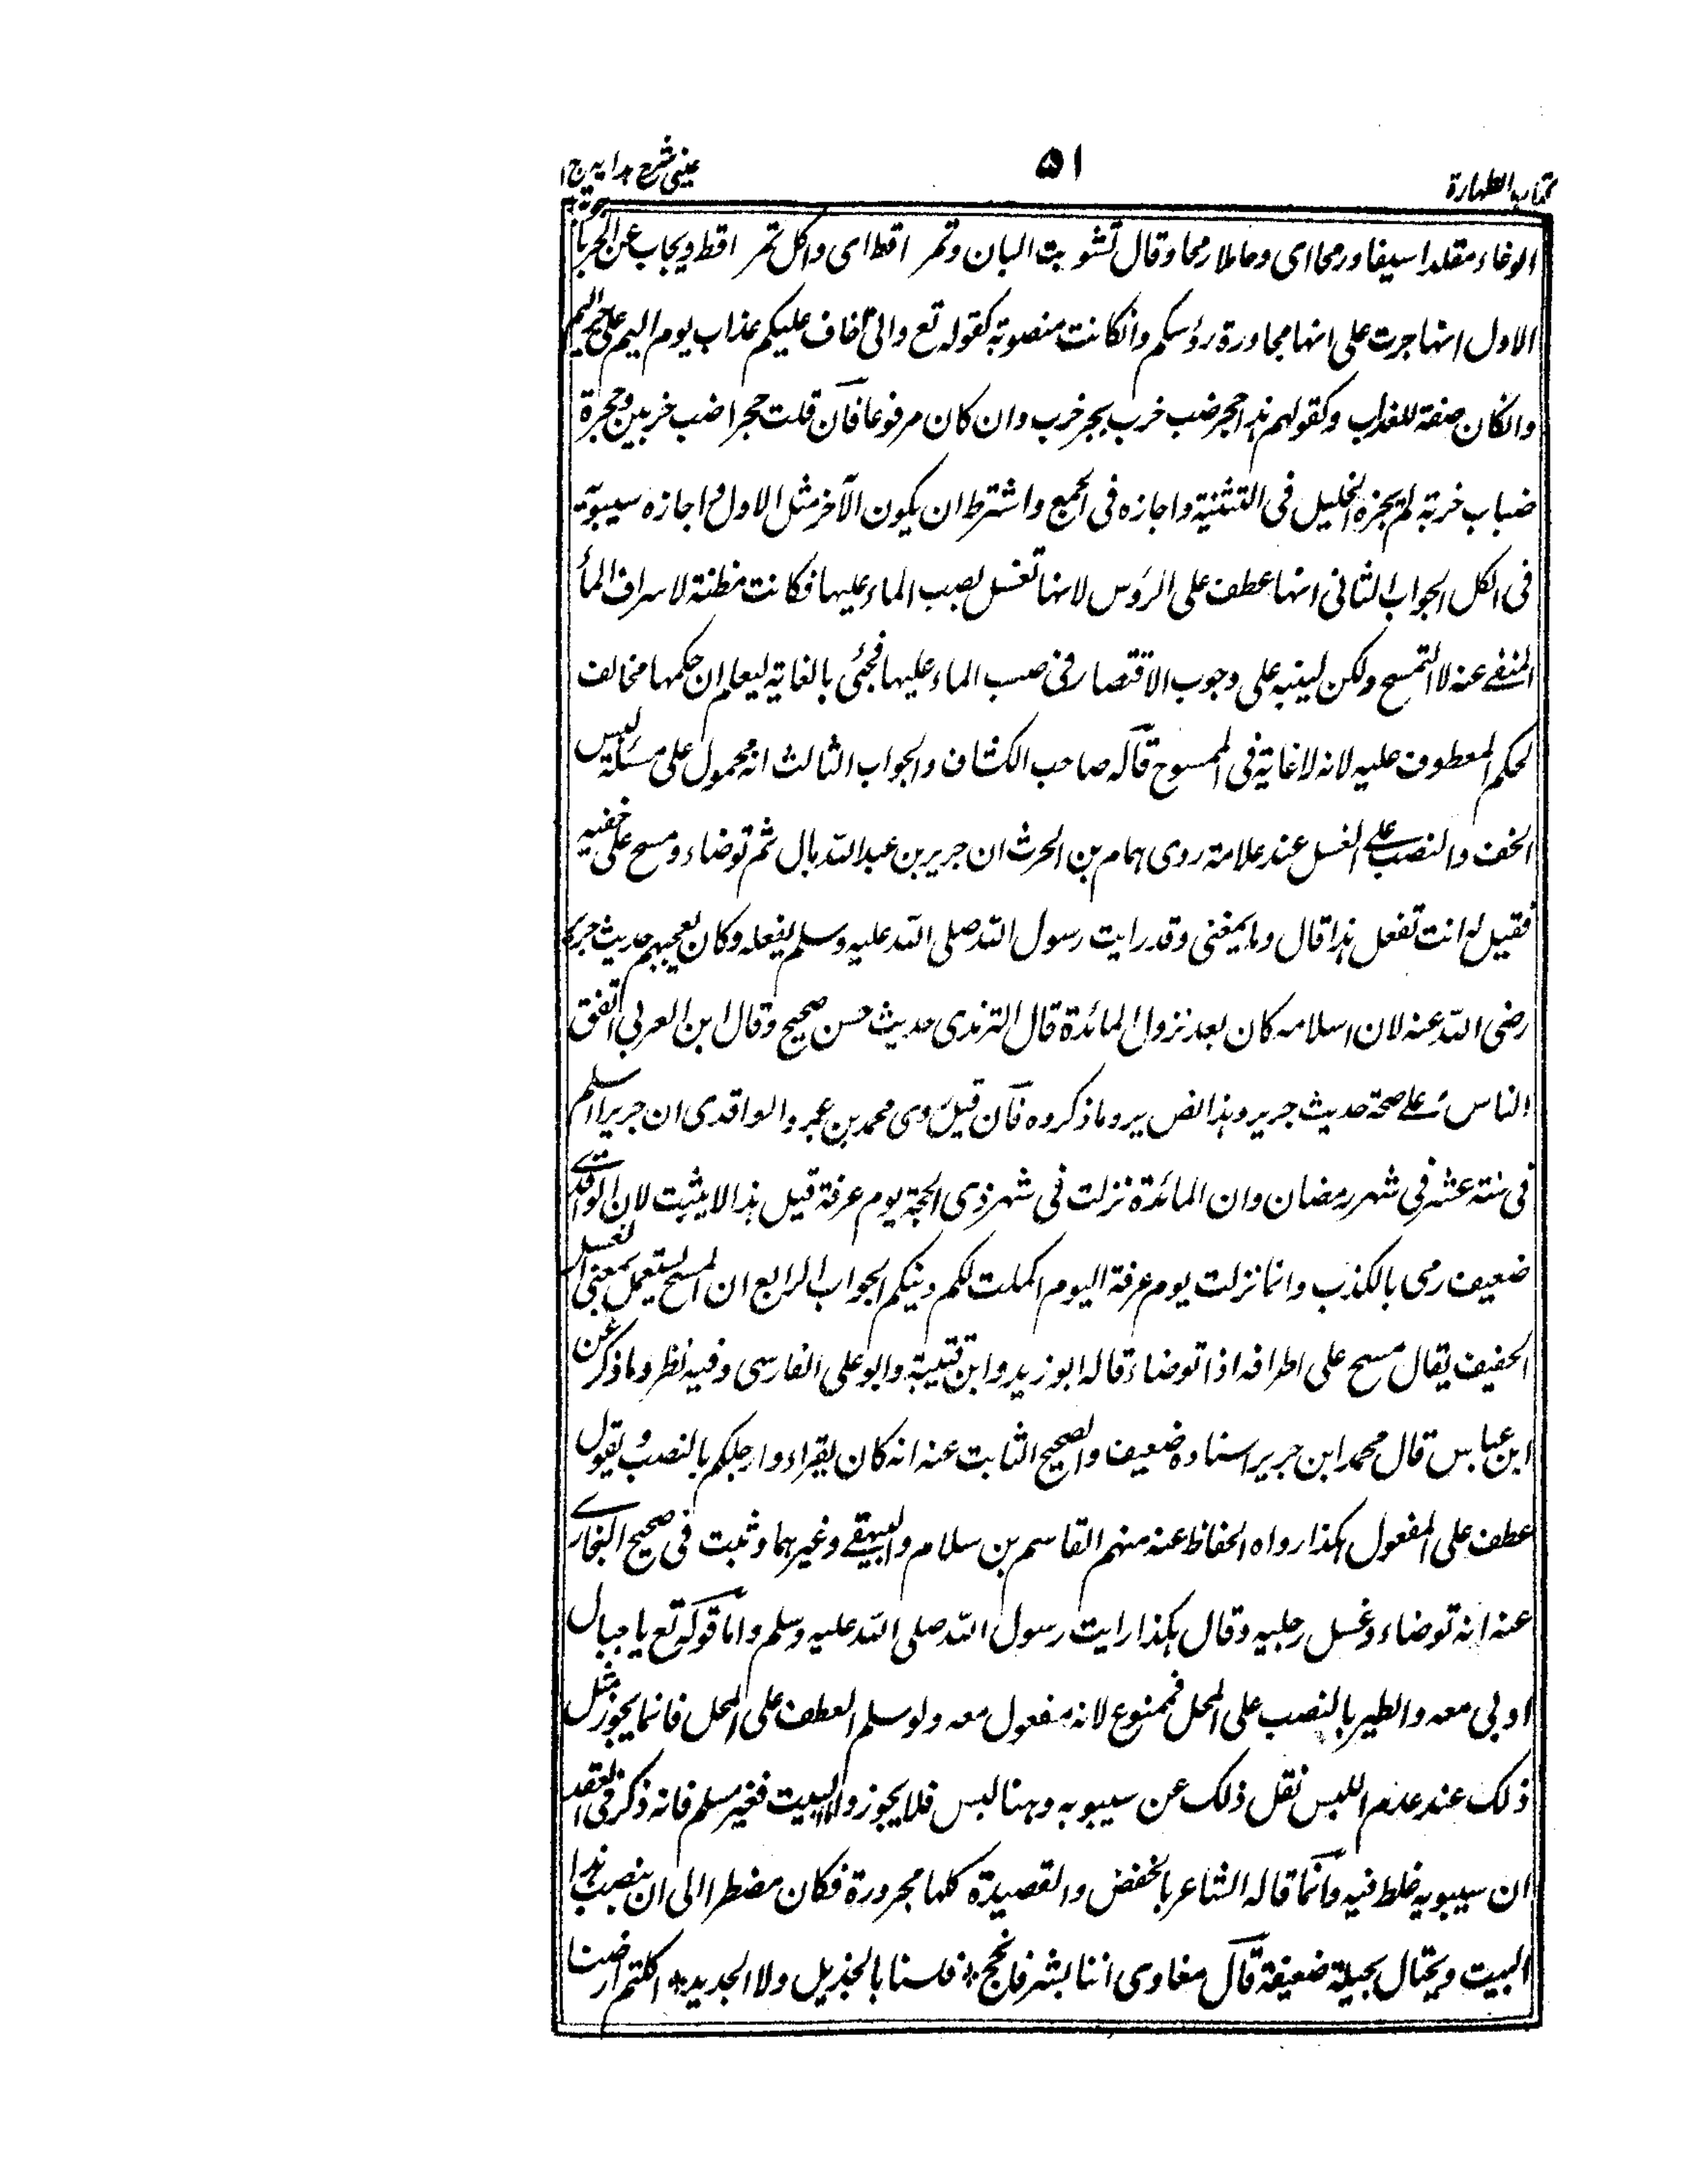 كتاب الطهارة
٥١
عينى شرح هدايه ج ١
الوغاء مقلدا سيفا ورمحا اى وحاملا رمحا وقال تشو بت البان وتمر اقط اى واكل تمر اقط ويجاب عن الجر باجوبة
الاول انها جرت على انها مجاورة رؤسكم وانكانت منصوبة كقوله تع وانى اخاف عليكم عذاب يوم اليم على جر اليم
وانكان صفة للعذاب وكقولهم هذا حجر ضب خرب بجر خرب وان كان مرفوعا فان قلت حجرا ضب خربين وحجرة
ضباب خربة لم يجزه الخليل فى التثنية واجازه فى الجمع واشترط ان يكون الآخر مثل الاول واجازه سيبويه
فى الكل الجواب الثانى انها عطف على الرؤس لانها تغسل بصب الماء عليها فكانت مظنة لاسراف الماء
المنفے عنه لا التمسح ولكن لينبه على وجوب الاقتصار فى صب الماء عليها فجئى بالغاية ليعلم ان حكمها مخالف
لحكم المعطوف عليه لانه لا غاية فى الممسوح قاله صاحب الكشاف والجواب الثالث انه محمول على مسئلة لبس
الخف والنصب علے الغسل عند علامته روى همام بن الحرث ان جرير بن عبد الله بال ثم توضاء ومسح على خفيه
فقيل له انت تفعل هذا قال وما يمنعنى وقد رايت رسول الله صلى الله عليه وسلم يفعله وكان يعجبهم حديث جرير
رضى الله عنه لان اسلامه كان بعد نزول المائدة قال الترمذى حديث حسن صحيح وقال ابن العربى اتفق
الناس علے صحة حديث جرير وهذا نص يرد ما ذكروه فان قيل روى محمد بن عمر والواقدى ان جريرا اسلم
فى سنة عشر فى شهر رمضان وان المائدة نزلت فى شهر ذى الحجة يوم عرفة قيل هذا لا يثبت لان الواقدے
ضعيف رمى بالكذب وانما نزلت يوم عرفة اليوم اكملت لكم دينكم الجواب الرابع ان المسح يستعمل بمعنى الغسل
الخفيف يقال مسح على اطرافه اذا توضاء قاله ابو زيد وابن قتيبة وابو على الفارسى وفيه نظر وما ذكر عن
ابن عباس قال محمد ابن جرير اسناده ضعيف والصحيح الثابت عنه انه كان يقراء وارجلكم بالنصب ويقول
عطف على المفعول هكذا رواه الحفاظ عنه منهم القاسم بن سلام والبيهقے وغيرهما وثبت فى صحيح البخارے
عنه انه توضاء وغسل رجليه وقال هكذا رايت رسول الله صلى الله عليه وسلم واما قوله تع يا جبال
اوبى معه والطير بالنصب على المحل فممنوع لانه مفعول معه ولو سلم العطف على المحل فانما يجوز مثل
ذلك عند عدم اللبس نقل ذلك عن سيبويه وهنا لبس فلا يجوز والبيت فغير مسلم فانه ذكر فى العقد
ان سيبويه غلط فيه وانما قاله الشاعر بالخفض والقصيدة كلها مجرورة فكان مضطرا الى ان ينصب هذا
البيت ويحتال بحيلة ضعيفة قال معاوى اننا بشر فانجح * فلسنا بالجذيل ولا الجديد * اكلتم ارضنا